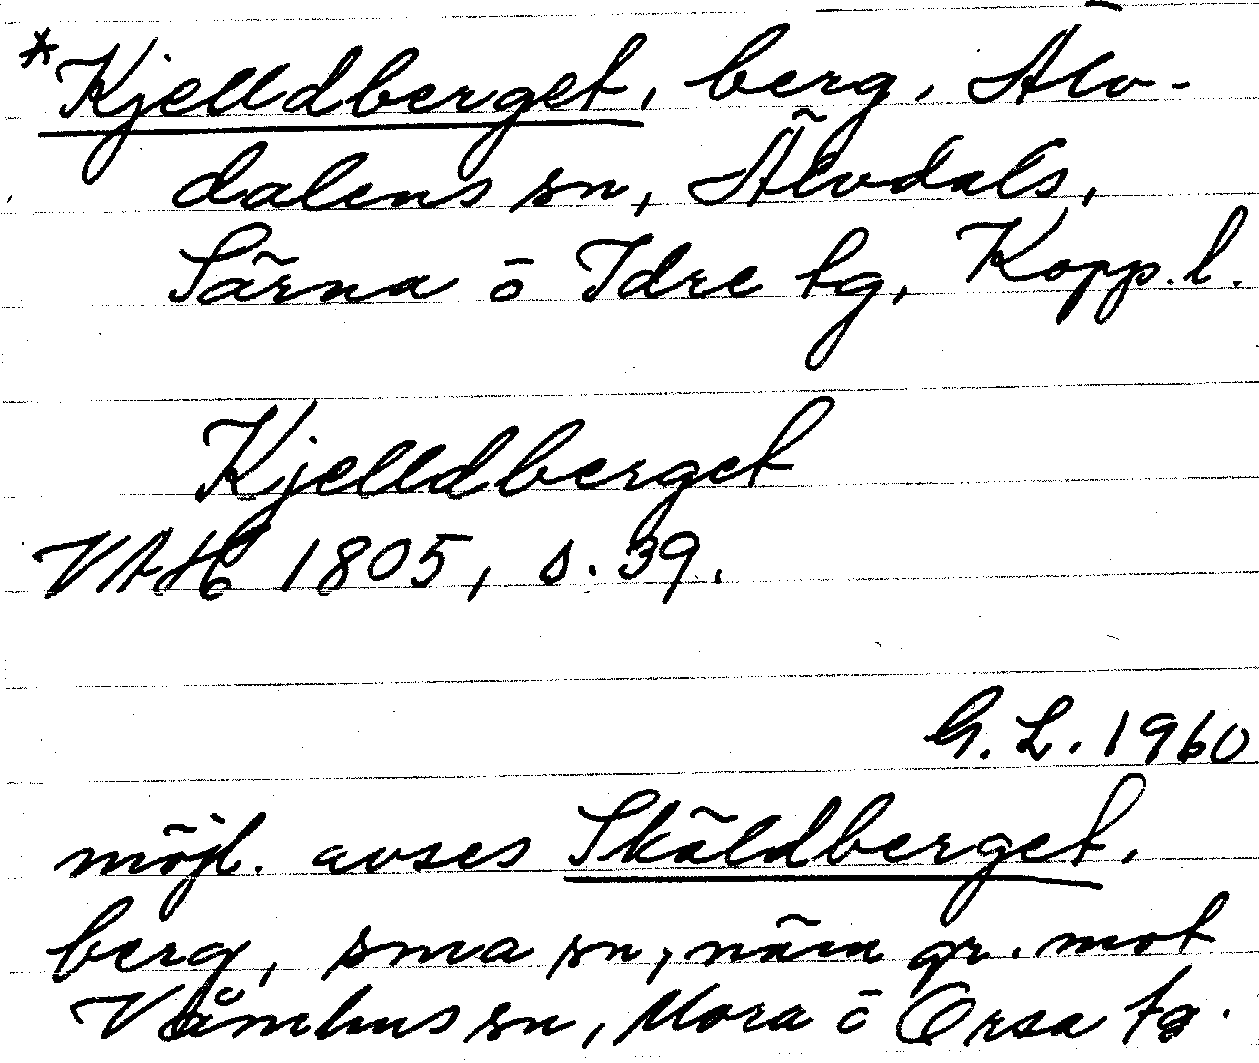 *Kjelldberget, berg, Älv-
dalens sn, Älvdals,
Särna o Idre tg, Kopp. l.
Kjelldberget
VAH 1805, s. 39.
G. L. 1960
möjl. avses Skäldberget,
berg, sma sn, näm gr. mot
Våmhus sn, Mora o Orsa tg.